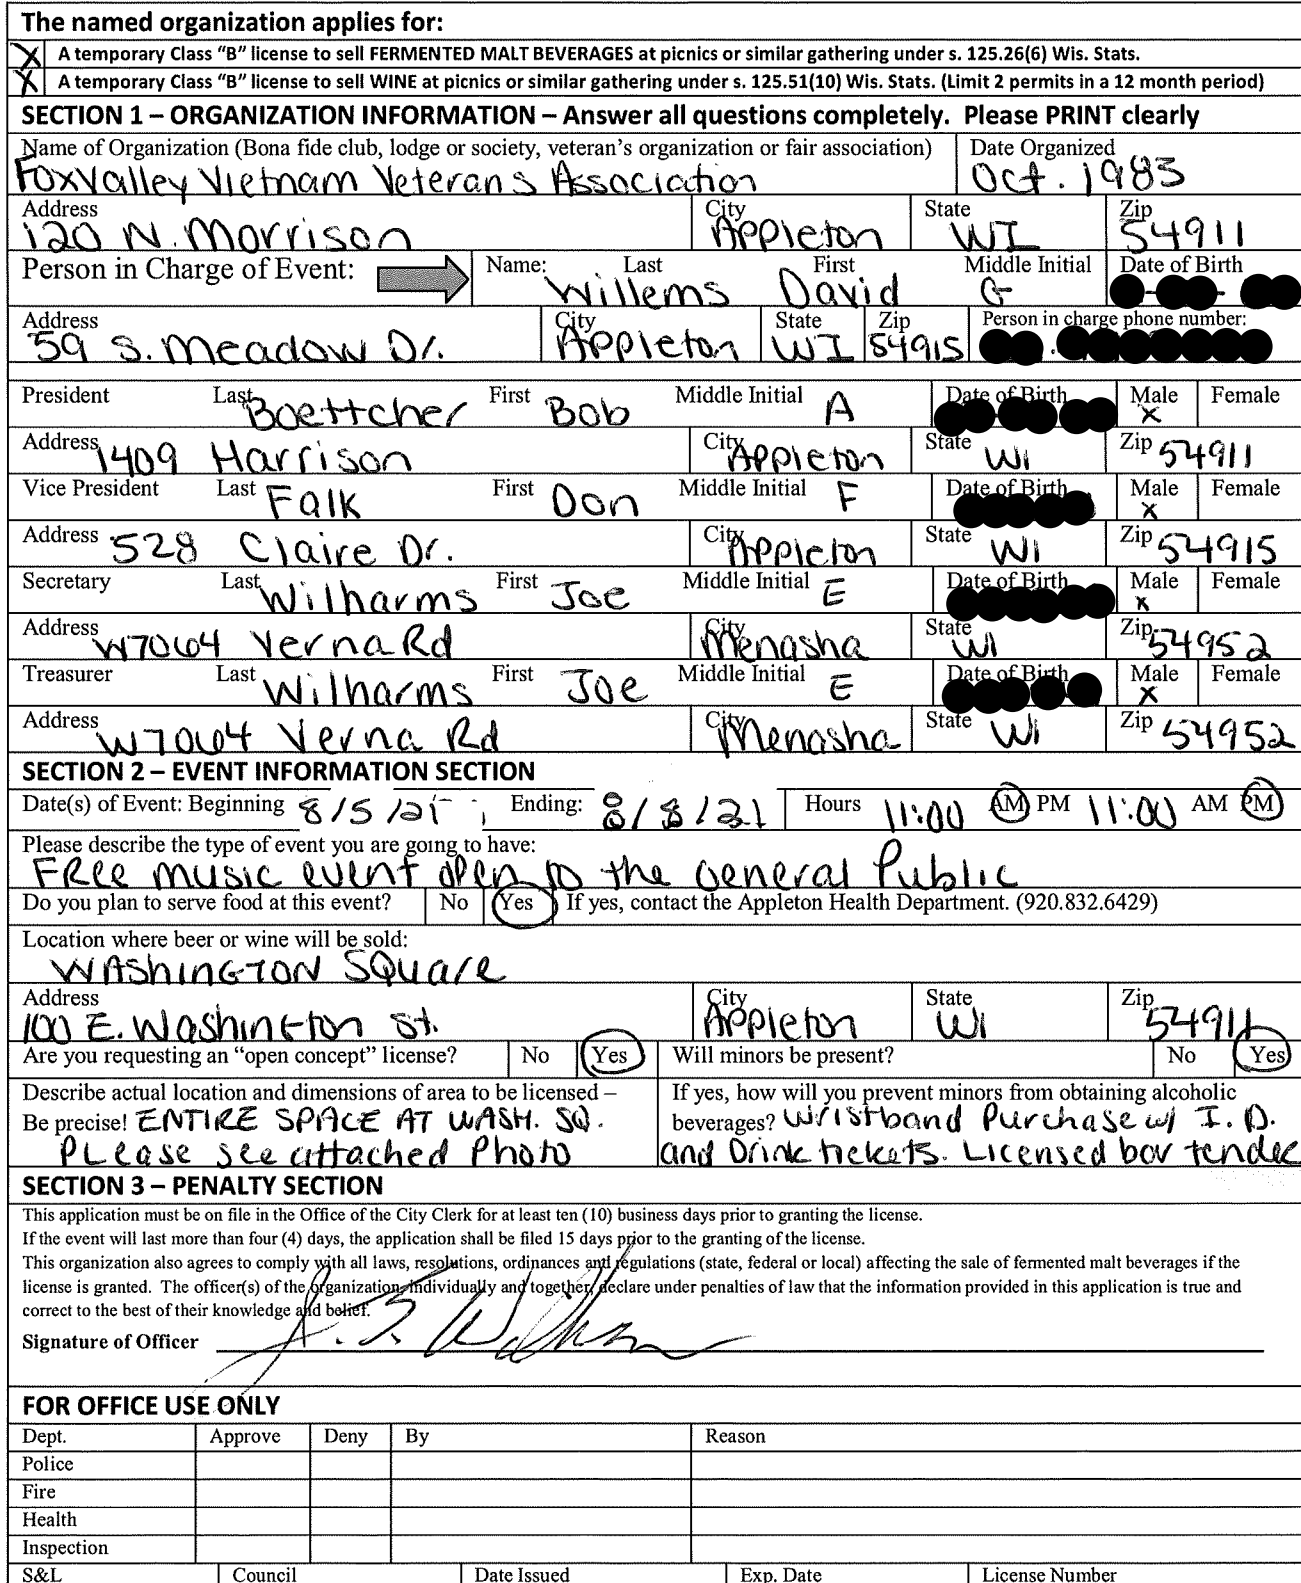 The named organization applies for:
X A temporary Class “B” license to sell FERMENTED MALT BEVERAGES at picnics or similar gathering under s. 125.26(6) Wis. Stats.
X A temporary Class “B” license to sell WINE at picnics or similar gathering under s. 125.51(10) Wis. Stats. (Limit 2 permits in a 12 month period)
SECTION 1 – ORGANIZATION INFORMATION – Answer all questions completely. Please PRINT clearly
Name of Organization (Bona fide club, lodge or society, veteran’s organization or fair association) Date Organized
Fox Valley Vietnam Veterans Association Oct. 1983
Address City State Zip
120 N. Morrison Appleton WI 54911
Person in Charge of Event: Name: Last First Middle Initial Date of Birth
Willems David G
Address City State Zip Person in charge phone number:
59 S. Meadow Dr. Appleton WI 54915
President Last Boettcher First Bob Middle Initial A Date of Birth Male X Female
Address 1409 Harrison City Appleton State WI Zip 54911
Vice President Last Falk First Don Middle Initial F Date of Birth Male X Female
Address 528 Claire Dr. City Appleton State WI Zip 54915
Secretary Last Wilharms First Joe Middle Initial E Date of Birth Male X Female
Address W7064 Verna Rd City Menasha State WI Zip 54952
Treasurer Last Wilharms First Joe Middle Initial E Date of Birth Male X Female
Address W7064 Verna Rd City Menasha State WI Zip 54952
SECTION 2 – EVENT INFORMATION SECTION
Date(s) of Event: Beginning 8/5/21 Ending: 8/8/21 Hours 11:00 AM PM 11:00 AM PM
Please describe the type of event you are going to have:
Free music event open to the General Public
Do you plan to serve food at this event? No Yes If yes, contact the Appleton Health Department. (920.832.6429)
Location where beer or wine will be sold:
Washington Square
Address City State Zip
100 E. Washington St. Appleton WI 54911
Are you requesting an “open concept” license? No Yes Will minors be present? No Yes
Describe actual location and dimensions of area to be licensed –
Be precise! ENTIRE SPACE AT WASH. SQ.
Please see attached Photo
If yes, how will you prevent minors from obtaining alcoholic
beverages? Wristband Purchase w/ I.D.
and Drink tickets. Licensed bar tender
SECTION 3 – PENALTY SECTION
This application must be on file in the Office of the City Clerk for at least ten (10) business days prior to granting the license.
If the event will last more than four (4) days, the application shall be filed 15 days prior to the granting of the license.
This organization also agrees to comply with all laws, resolutions, ordinances and regulations (state, federal or local) affecting the sale of fermented malt beverages if the
license is granted. The officer(s) of the organization, individually and together, declare under penalties of law that the information provided in this application is true and
correct to the best of their knowledge and belief.
Signature of Officer
FOR OFFICE USE ONLY
Dept. Approve Deny By Reason
Police
Fire
Health
Inspection
S&L Council Date Issued Exp. Date License Number